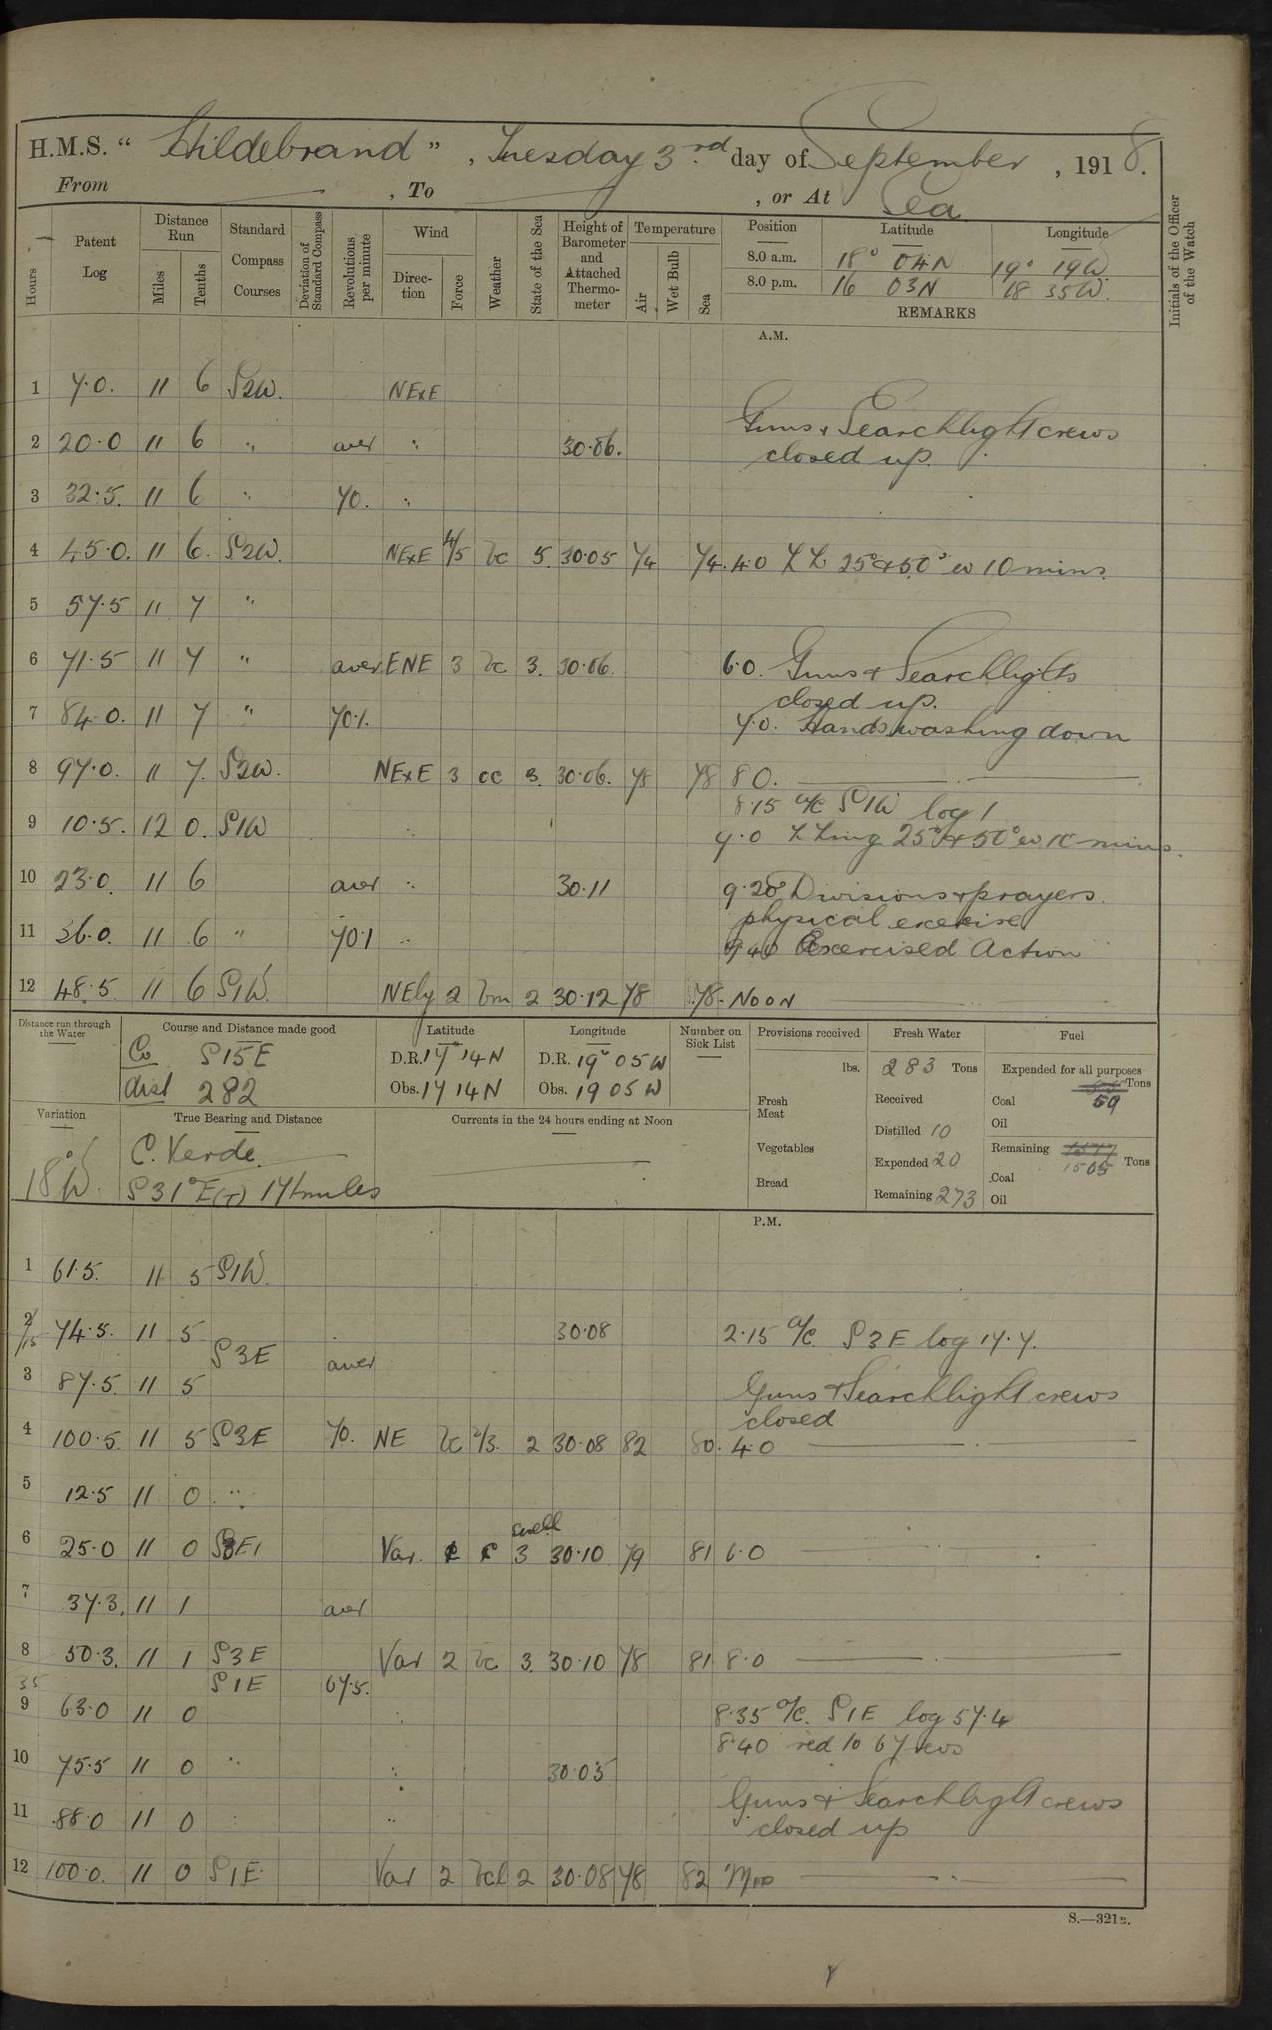 H.M.S. “ Hildebrand ” , Tuesday 3rd day of September , 1918.
From , To , or At Sea
Hours Patent Log Distance Run Miles Tenths Standard Compass Courses Deviation of Standard Compass Revolutions per minute Wind Direction Force Weather State of the Sea Height of Barometer and Attached Thermometer Temperature Air Wet Bulb Sea Position Latitude Longitude Initials of the Officer of the Watch
8.0 a.m. 18° 04N 19° 19W
8.0 p.m. 16 03N 18 35W.
REMARKS
A.M.
1 7.0. 11 6 S2W. NExE
Guns & Searchlight crews
2 20.0 11 6 " aver " 30.06.
closed up.
3 32.5. 11 6 " 70. "
4 45.0. 11 6. S2W. NExE 4/5 bc 5. 30.05 74 74. 4.0 ZZ 25° & 50° ev 10 mins.
5 57.5 11 7 "
6 71.5 11 7 " aver ENE 3 bc 3. 30.06. 6.0. Guns & Searchlights
closed up.
7 84.0. 11 7 " 70.1. 7.0. Hands washing down
8 97.0. 11 7. S2W. NExE 3 oc 3. 30.06. 78 78 8.0.
8.15 a/c S1W log 1
9 10.5. 12 0. S1W " 9.0 ZZing 25° & 50° ev 10 mins.
10 23.0. 11 6 aver " 30.11 9.20 Divisions & prayers.
physical exercise
11 36.0. 11 6 " 70.1 " 9.40 Exercised Action
12 48.5. 11 6 S1W. NEly 2 bm 2 30.12 78 78. NOON
Distance run through the Water Course and Distance made good Latitude Longitude Number on Sick List Provisions received Fresh Water Fuel
Co S15E D.R. 17° 14N D.R. 19° 05W lbs. 283 Tons Expended for all purposes
dist 282 Obs. 17 14N Obs. 19 05W Fresh Meat Received Coal 59 Tons
Oil
Variation True Bearing and Distance Currents in the 24 hours ending at Noon Distilled 10
18° W. C. Verde. Vegetables Expended 20 Remaining 1505 Tons
Coal
S31°E(T) 174 miles Bread Remaining 273 Oil
P.M.
1 61.5. 11 5 S1W.
2/15 74.5. 11 5 30.08 2.15 a/c. S3E log 77.7.
S3E aver
3 87.5. 11 5 Guns & Searchlight crews
closed
4 100.5. 11 5 S3E 70. NE bc 2/3. 2 30.08 82 80. 4.0
5 12.5 11 0 "
swell
6 25.0 11 0 S3E Var. c c 3 30.10 79 81 6.0
7 37.3. 11 1 aver
8 50.3. 11 1 S3E Var 2 bc 3. 30.10 78 81 8.0
35 S1E 67.5.
9 63.0 11 0 " 8.35 a/c. S1E log 57.4
8.40 red to 67 revs
10 75.5 11 0 " " 30.05
Guns & Searchlight crews
11 88.0 11 0 " closed up
12 100.0. 11 0 S1E Var 2 bcl 2 30.08 78 82
S.—321B.